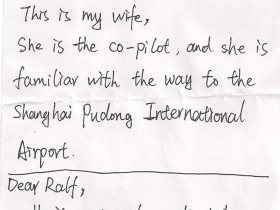 This is my wife,
She is the co-pilot, and she is
familiar with the way to the
Shanghai Pudong International
Airport.
Dear Ralf,